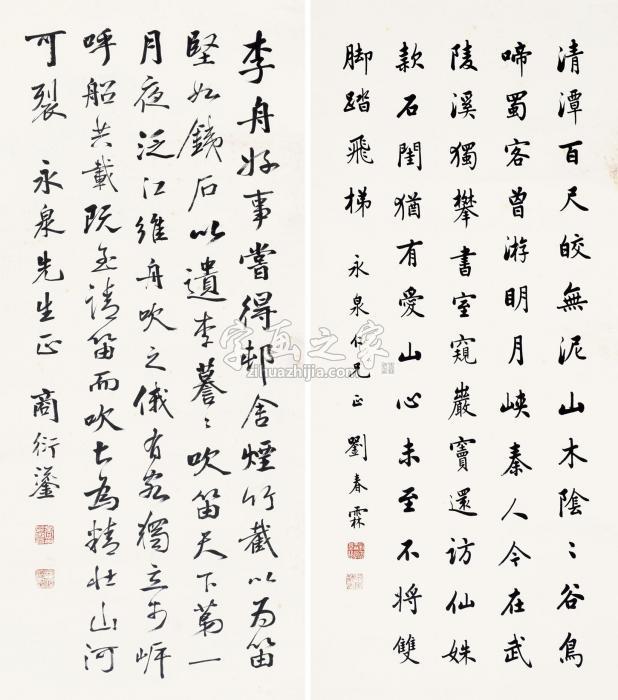 清潭百尺皎無泥山木陰〻谷鳥
啼蜀客曾游明月峽秦人今在武
陵溪獨攀書室窺巖竇還訪仙姝
款石閨猶有愛山心未至不將雙
脚踏飛梯
永泉仁兄正 劉春霖
李舟好事嘗得邨舍煙竹截以為笛
堅如鐵石以遺李蓦〻吹笛天下第一
月夜泛江維舟吹之俄有客獨立於岸
呼船共載既至請笛而吹甚為精壯山河
可裂 永泉先生正 商衍鎏
字画之家
zihuazhijia.com